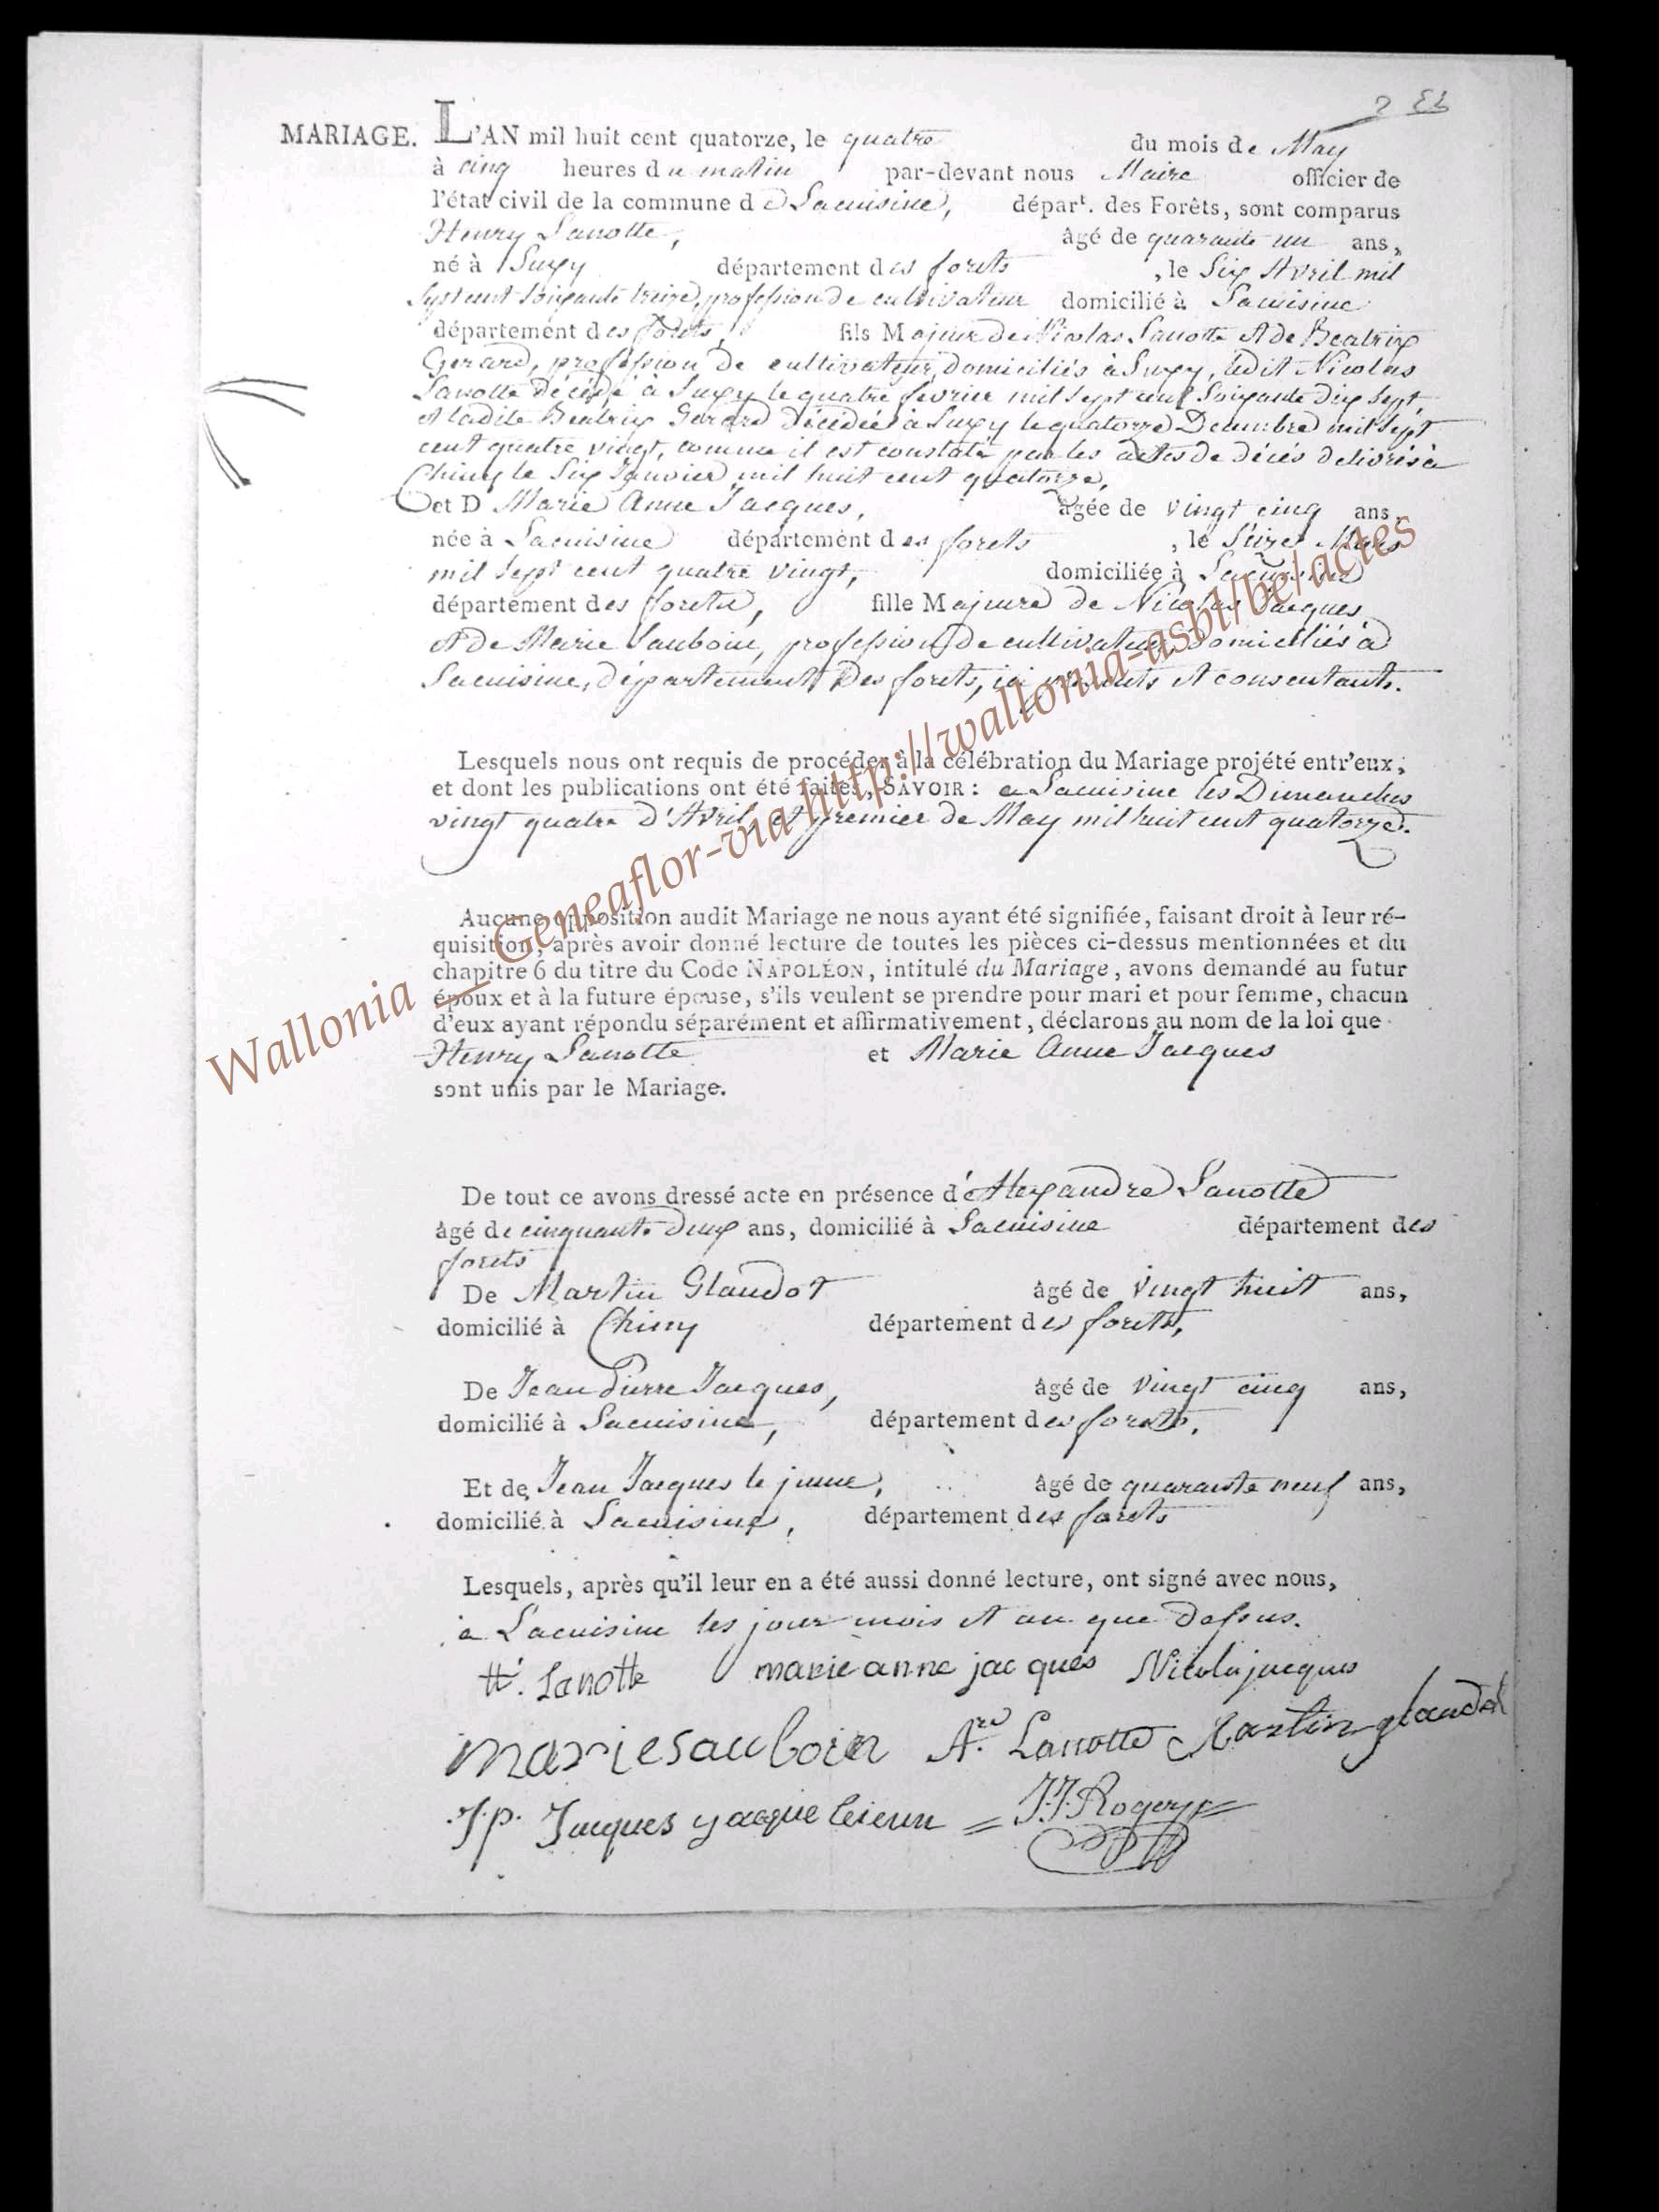 MARIAGE. L'AN mil huit cent quatorze, le quatre du mois de May
à cinq heures du matin par-devant nous Maire officier de
l'état civil de la commune de Lacuisine, départ. des Forêts, sont comparus
Henry Lanotte, âgé de quarante un ans,
né à Suxy département des forets, le Six Avril mil
Sept cent Soixante treize, profession de cultivateur domicilié à Lacuisine
département des forets, fils Majeur de Nicolas Lanotte et de Beatrix
Gerard, profession de cultivateur, domiciliés à Suxy, ledit Nicolas
Lanotte décédé à Suxy le quatre fevrier mil Sept cent Soixante dix sept,
et ladite Beatrix Gerard décédée à Suxy le quatorze Decembre mil Sept
cent quatre vingt, comme il est constaté par les actes de décés delivrés à
Chiny le Six Janvier mil huit cent quatorze,
et D Marie Anne Jacques, âgée de vingt cinq ans,
née à Lacuisine département des forets, le Seize Mars
mil Sept cent quatre vingt, domiciliée à Lacuisine
département des forets, fille Majeure de Nicolas Jacques
et de Marie Sauboin, profession de cultivateur, domiciliés à
Lacuisine, département Des forets, ici présents et consentants.
Lesquels nous ont requis de procéder à la célébration du Mariage projété entr'eux,
et dont les publications ont été faites, SAVOIR : a Lacuisine les Dimanches
vingt quatre d'Avril, et premier de May mil huit cent quatorze.
Aucune opposition audit Mariage ne nous ayant été signifiée, faisant droit à leur ré-
quisition, après avoir donné lecture de toutes les pièces ci-dessus mentionnées et du
chapitre 6 du titre du Code NAPOLÉON, intitulé du Mariage, avons demandé au futur
époux et à la future épouse, s'ils veulent se prendre pour mari et pour femme, chacun
d'eux ayant répondu séparément et affirmativement, déclarons au nom de la loi que
Henry Lanotte et Marie Anne Jacques
sont unis par le Mariage.
De tout ce avons dressé acte en présence d'Alexandre Lanotte
âgé de cinquante Deux ans, domicilié à Lacuisine département des
forets
De Martin Glaudot âgé de vingt huit ans,
domicilié à Chiny département des forets,
De Jean Pierre Jacques, âgé de vingt cinq ans,
domicilié à Lacuisine, département des forets,
Et de Jean Jacques le jeune, âgé de quarante neuf ans,
domicilié à Lacuisine, département des forets
Lesquels, après qu'il leur en a été aussi donné lecture, ont signé avec nous,
a Lacuisine les jour mois et an que Dessus.
H. Lanotte marie anne jacques Nicola jacques
marie sauboin A.re Lanotte Martin glaudot
J.p. Jacques J.J. Rogery
Wallonia - Geneaflor-via http://wallonia-asbl/be/actes